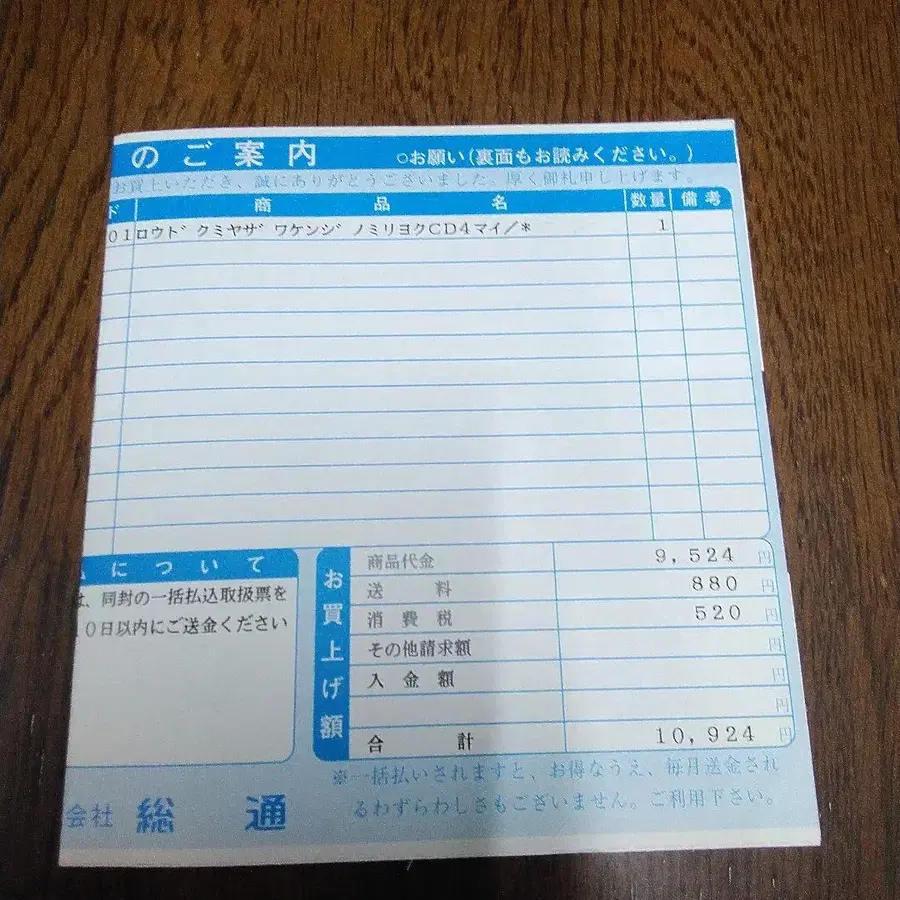 のご案内 ○お願い(裏面もお読みください。)
お買上いただき、誠にありがとうございました。厚く御礼申し上げます。
ド 商品名 数量 備考
01 ロウト゛クミヤサ゛ワケンシ゛ノミリヨクCD4マイ/* 1
について
、同封の一括払込取扱票を
0日以内にご送金ください
お買上げ額
商品代金 9,524 円
送料 880 円
消費税 520 円
その他請求額 円
入金額 円
円
合計 10,924 円
※一括払いされますと、お得なうえ、毎月送金され
るわずらわしさもございません。ご利用下さい。
会社 総通